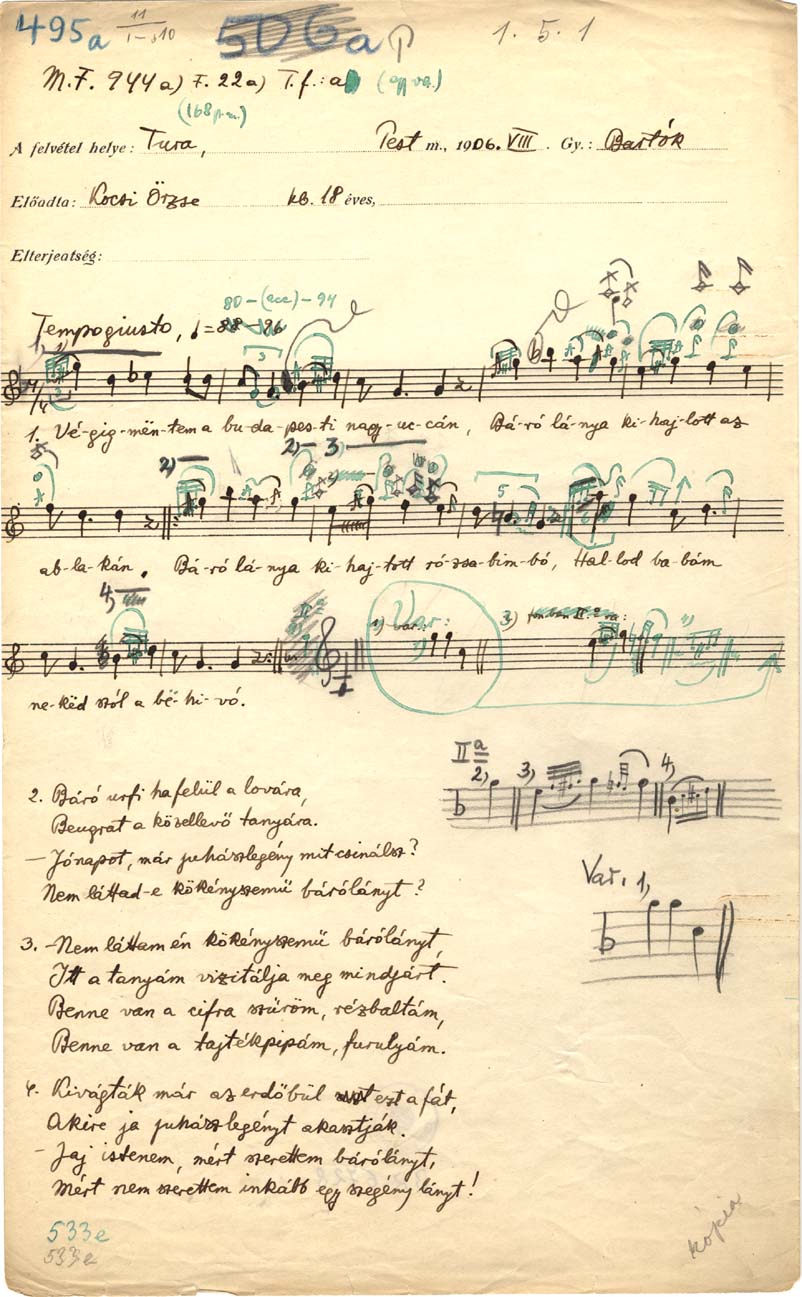 495a 11 I-s10 506a 1.5.1
M.F. 944a) F. 22a) T.f.: a
(168
A felvétel helye: Tura, Pest m., 1906. VIII. Gy.: Bartók
Előadta: Kocsi Örzse kb. 18 éves,
Elterjeatség:
80-(acc)-94
Tempo giusto, ♩=88-96
1. Vé-gig-mën-tem a bu-da-pes-ti nagy-uc-cán, Bá-ró lá-nya ki-haj-lott az
2) 2- 3)
ab-la-kán. Bá-ró lá-nya ki-haj-tott ró-zsa-bim-bó, Hal-lod ba-bám
4)
1) Var: 3)
ne-këd szól a bë-hi-vó.
IIª
2) 3) 4)
2. Báró urfi hafelül a lovára,
Beugrat a közellevő tanyára.
- Jónapot, már juhászlegény mit csinálsz?
Nem láttad-e kökényszemü bárólányt?
Var. 1,
3. - Nem láttam én kökényszemü bárólányt,
Itt a tanyám vizitálja meg mindjárt.
Benne van a cifra szűröm, rézbaltám,
Benne van a tajtékpipám, furulyám.
4. Kivágták már az erdőbül ezt a fát,
Akire ja juhászlegényt akasztják.
- Jaj istenem, mért szerettem bárólányt,
Mért nem szerettem inkább egy szegény lányt!
533e
533e
kópia